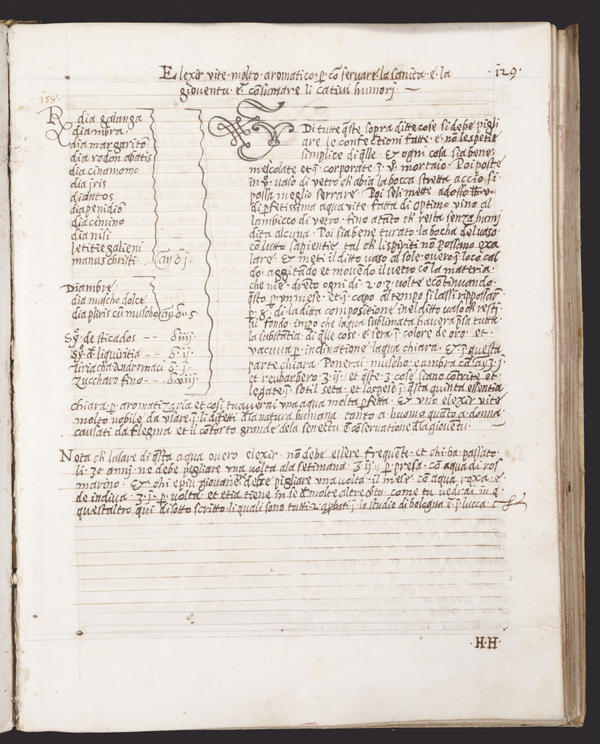 Elexir vite molto aromatico p cõ servare la sanita e la
·129·
gioventu · Et cõsumare li cativi humori
158·
Rx dia galanga
dia mbra
dia margarito
dia rodon abatis
dia cinamomo
dia iris
diantos
dia penidio
dia cimino
dia nili
letitie galieni
manus christi
Diambre
dia muscho dolce
dia pliris cũ muscho
Sy de sticados
Sy d liquiritia
zuccharo fino
Di tutte q̃ste sopra ditte cose si debe pigli
are le confectioni fatte · e · nõ le spetie
simplice di q̃lle · Et ogni cosa sia bene
mescolate et incorporate · mortaio · Poi poste
in vaso di vetro ch abia la bocha stretta accio si
possa meglio serrare · Poi seli mette adosso
di pfetissima aqua vite fatta di optimo vino al
lambicco di vetro fino atãto ch resta senza humi
dita alcuna · Poi sia bene turato la bocha del vaso
cõ luto sapientie tal ch li spiriti nõ possano exa
lare · Et meti il ditto vaso al sole overo in loco cal
do · aggitado et movẽdo il vetro cõ la materia
che vi e drẽto ogni di · 2 · o · 3 · volte e continuando
q̃sto p un mese · et in capo al tempo si lassi
p di la ditta compositione inel ditto vaso ch resti
al fondo · impo che laqua sublimata havera psa tutta
la substãtia di q̃lle cose e sera colore de oro · et ·
vacuva p inclinatione laqua chiara · Et in questa
parte chiara · Ponerai muscho et ambra
et reubarbero · et q̃ste 3 cose siano cõtrite et
legate in sotil seta · et sospese in q̃sta quinta essentia
chiara p aromatizarla et cosi truaverai una aqua molta pfetta · Et uno elexir vite
molto nobile da usare in li difetti d la natura humana tanto a huomo quãto a donna
causati da flegma et il cõforto grande dela senectu · Et conservatione d la gioventu
Nota ch lusare di q̃sta aqua overo elexir · nõ debe essere frequẽte · et chi ha passato
li · 30 · anni ne debe pigliare una volta ala settimana · p presa cõ aqua di ros
marino · Et chi e piu giovane debe pigliare una volta il mese cõ aqua roxa · e ·
de indiva · p volta · et etiã tiene in se molte altre virtu come tu vedrai in
questaltro qui disotto scritto li quali sono tutti lo studio di bologna e in lucca
·H·H·